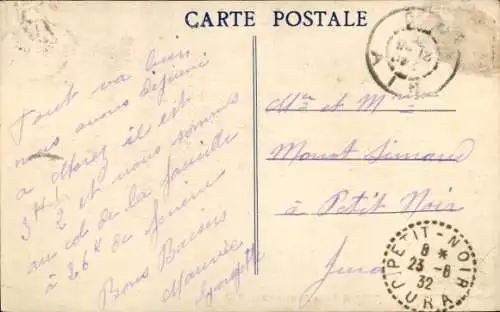 CARTE POSTALE
Tout va bien
nous avons déjeuné
à Morez il est
3H 1/2 et nous sommes
au col de la faucille
à 26K de Genève
Bons Baisers
Maurice
Georgette
Mr et Mme
Monot Simard
à Petit Noir
Jura
AIN
PETIT-NOIR
8 *
23-8
32
JURA